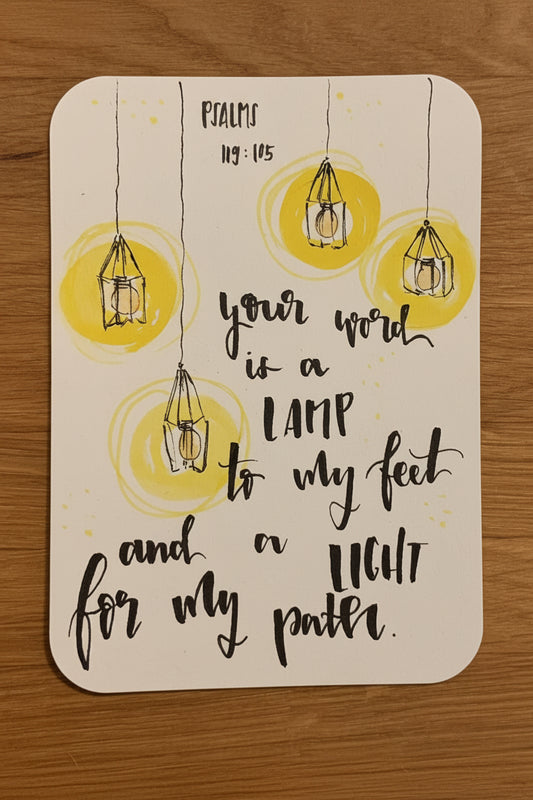 PSALMS
119:105
your word
is a
LAMP
to my feet
and a LIGHT
for my path.